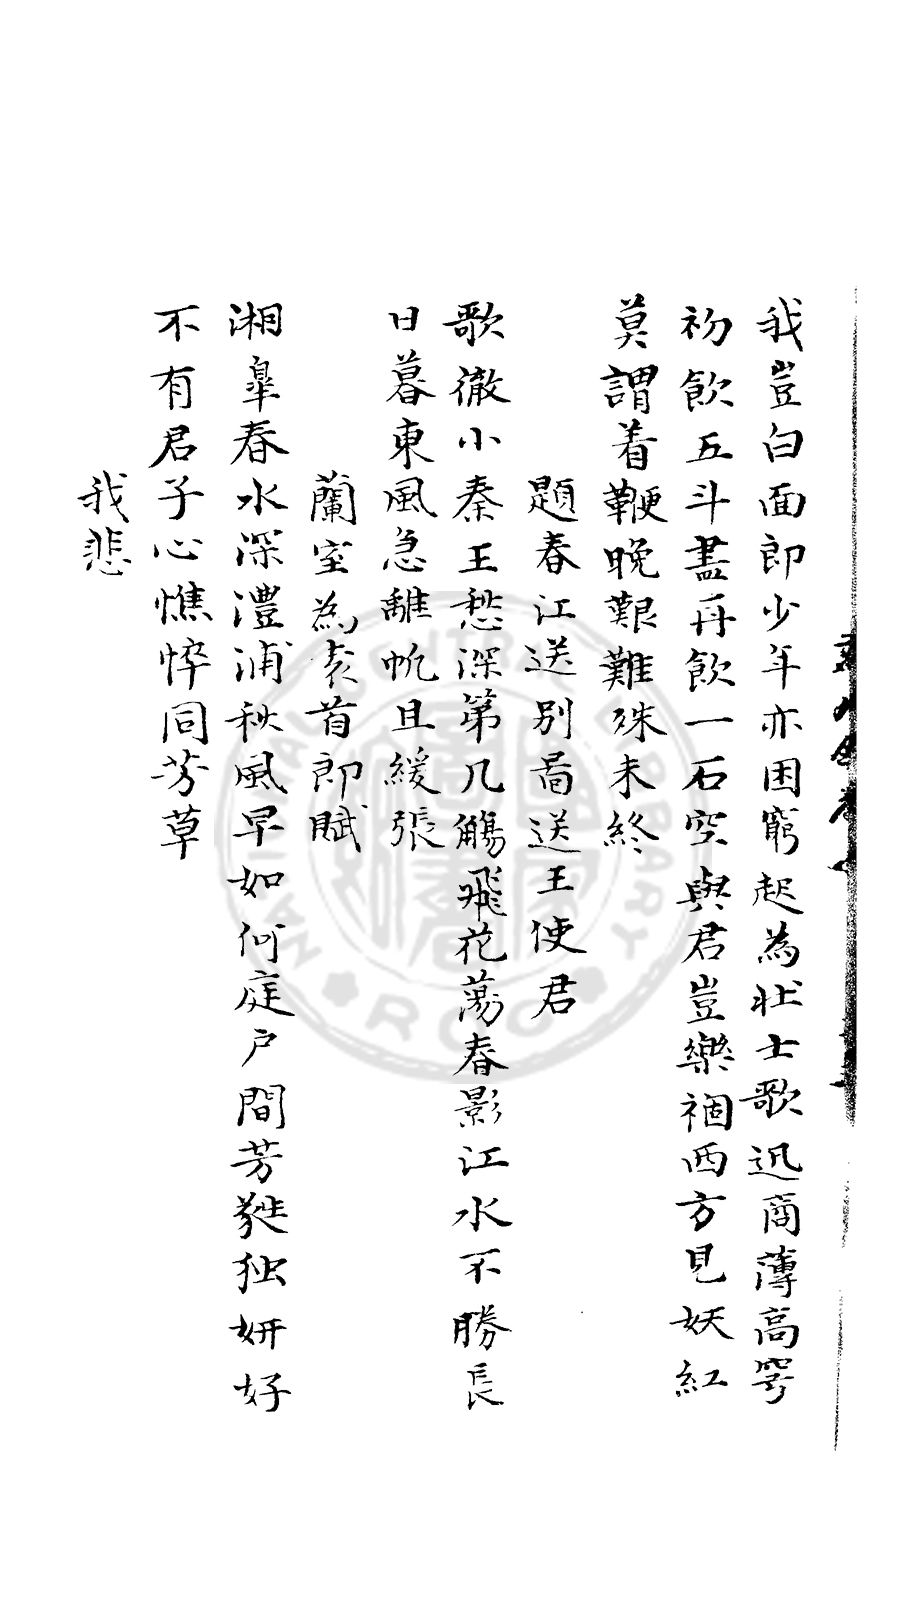 我豈白面郎少年亦困窮起為壯士歌迅商薄高穹
初飲五斗盡再飲一石空與君豈樂禍西方見妖紅
莫謂着鞭晚艱難殊未終
題春江送別啚送王使君
歌徹小秦王愁深第几觴飛花蕩春影江水不勝長
日暮東風急離帆且緩張
蘭室為袁首郎賦
湘皋春水深澧浦秋風早如何庭户間芳蕤独妍好
不有君子心憔悴同芳草
我悲
NATIONAL CENTRAL LIBRARY
ROC